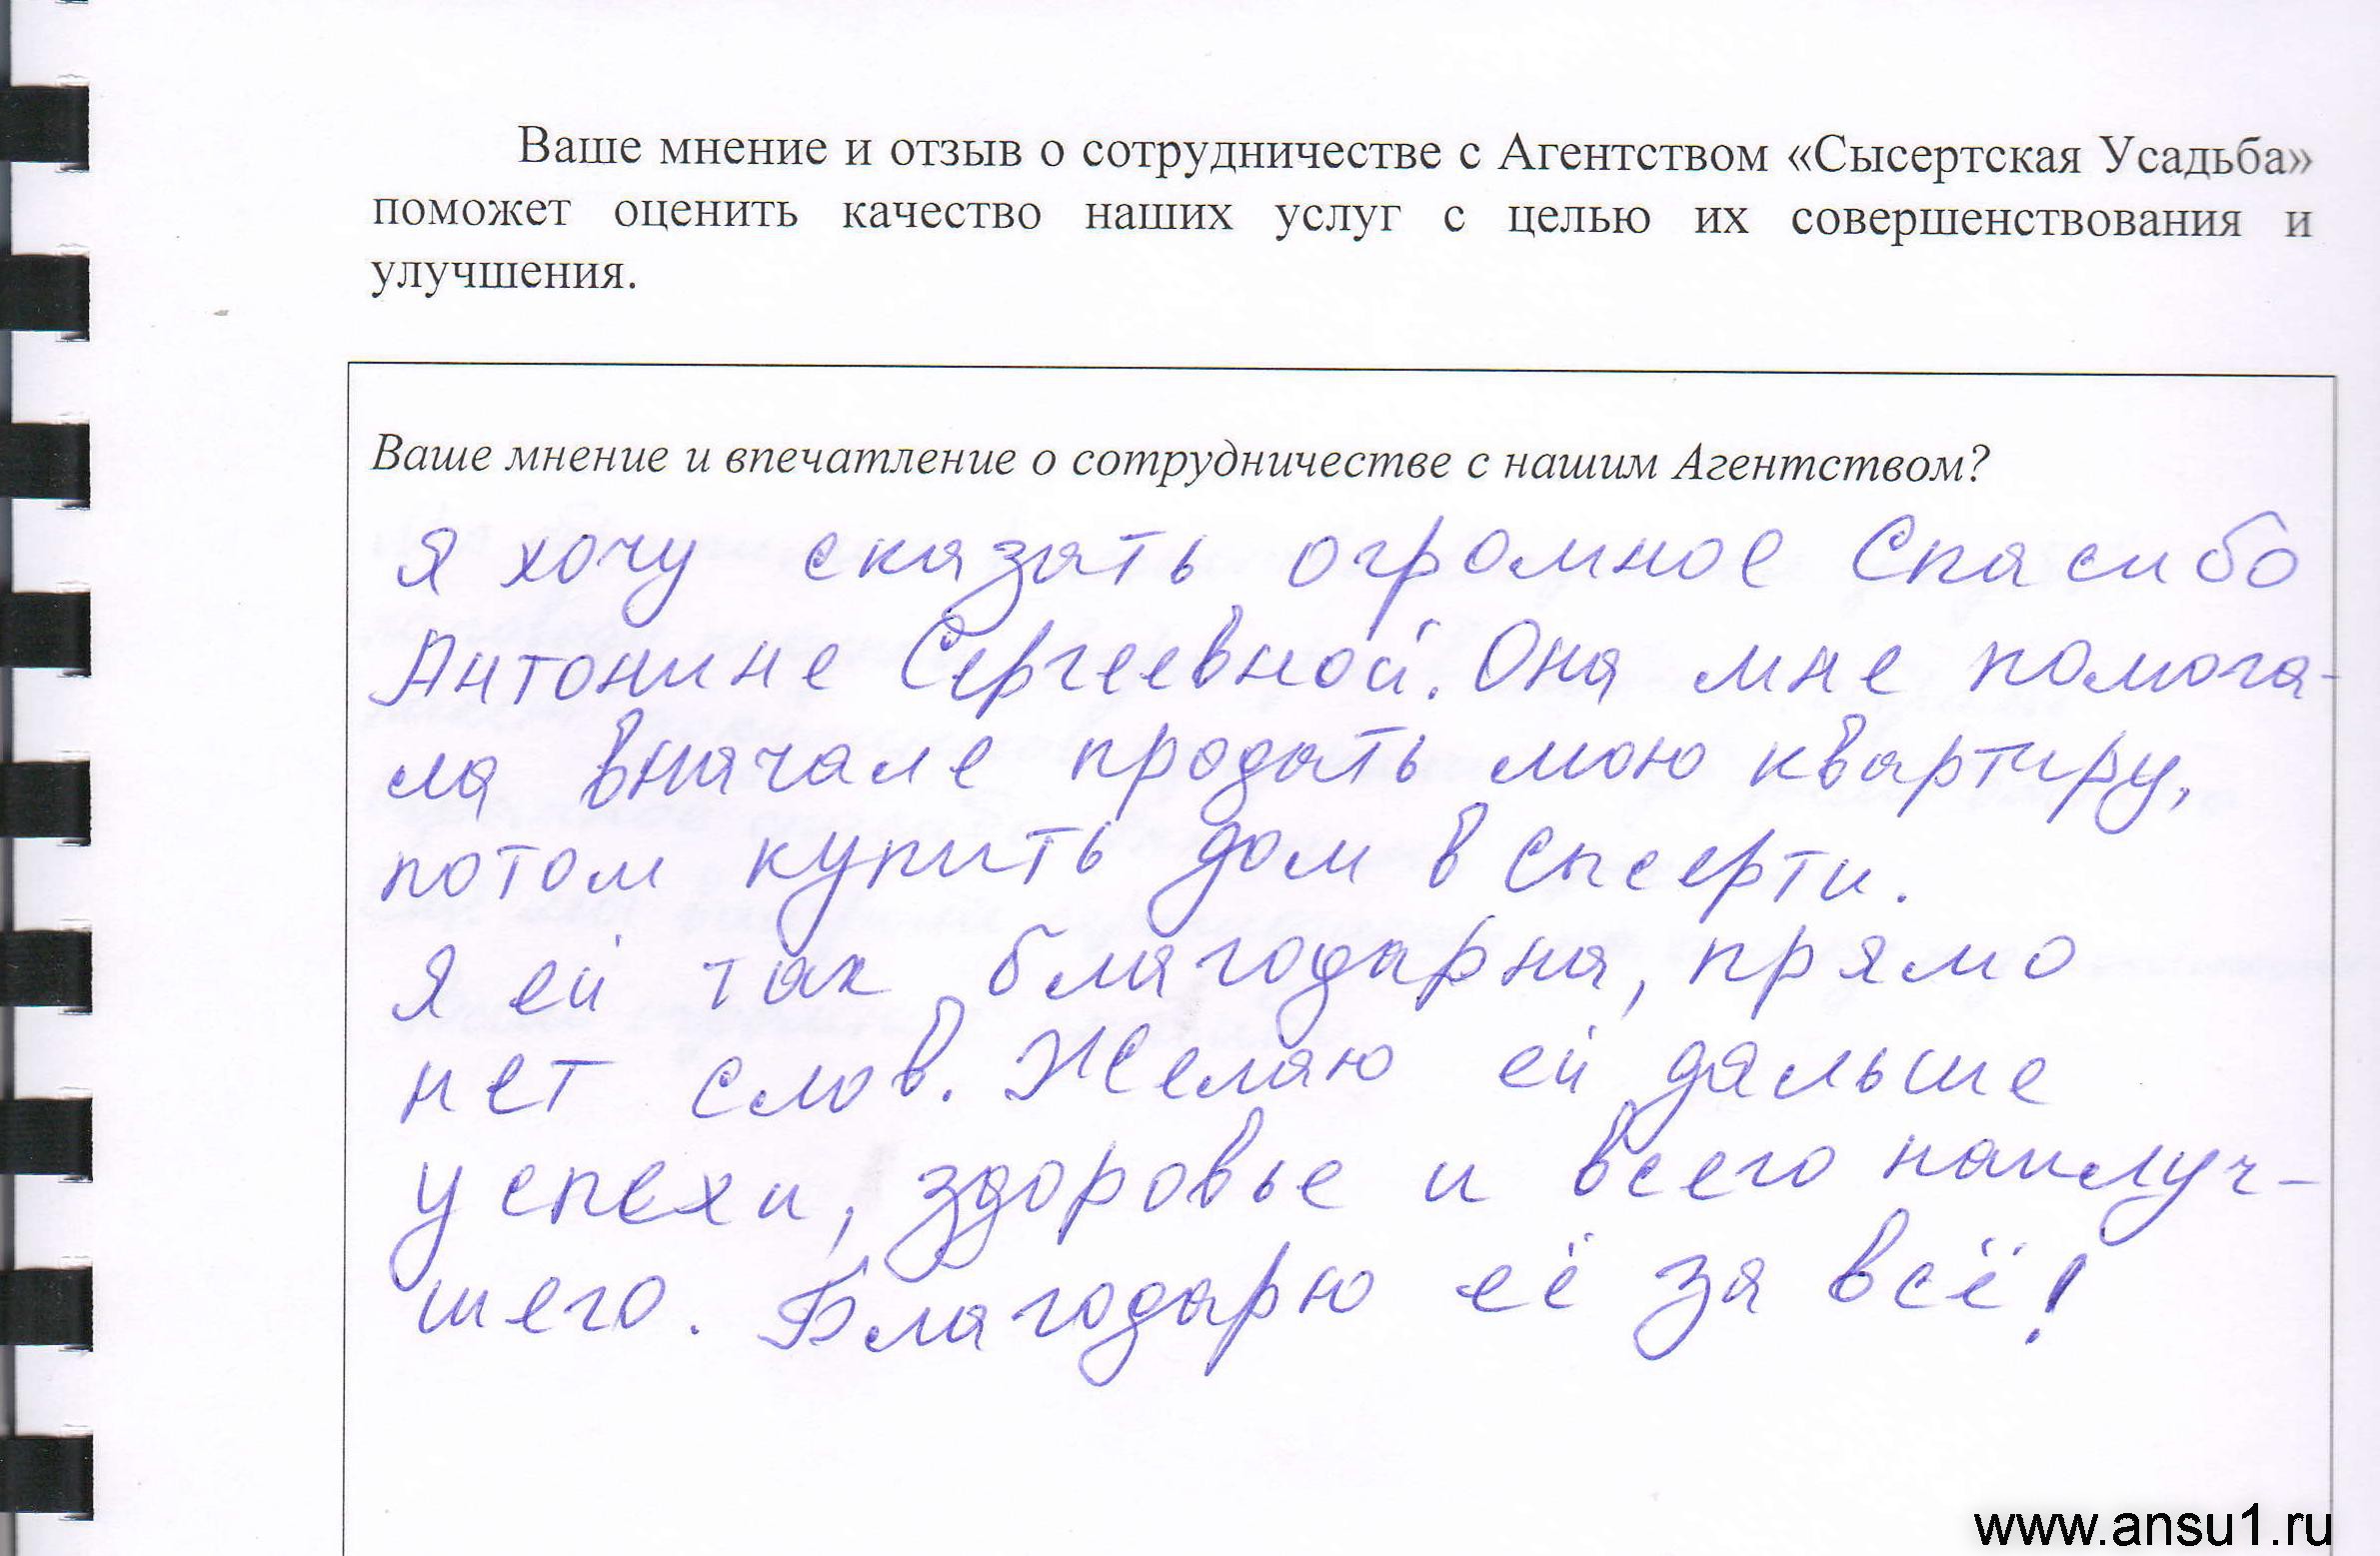 Ваше мнение и отзыв о сотрудничестве с Агентством «Сысертская Усадьба»
поможет оценить качество наших услуг с целью их совершенствования и
улучшения.
Ваше мнение и впечатление о сотрудничестве с нашим Агентством?
Я хочу сказать огромное Спасибо
Антонине Сергеевной. Она мне помога-
ла вначале продать мою квартиру,
потом купить дом в Сысерти.
Я ей так благодарна, прямо
нет слов. Желаю ей дальше
успехи, здоровье и всего наилуч-
шего. Благодарю её за всё!
www.ansu1.ru